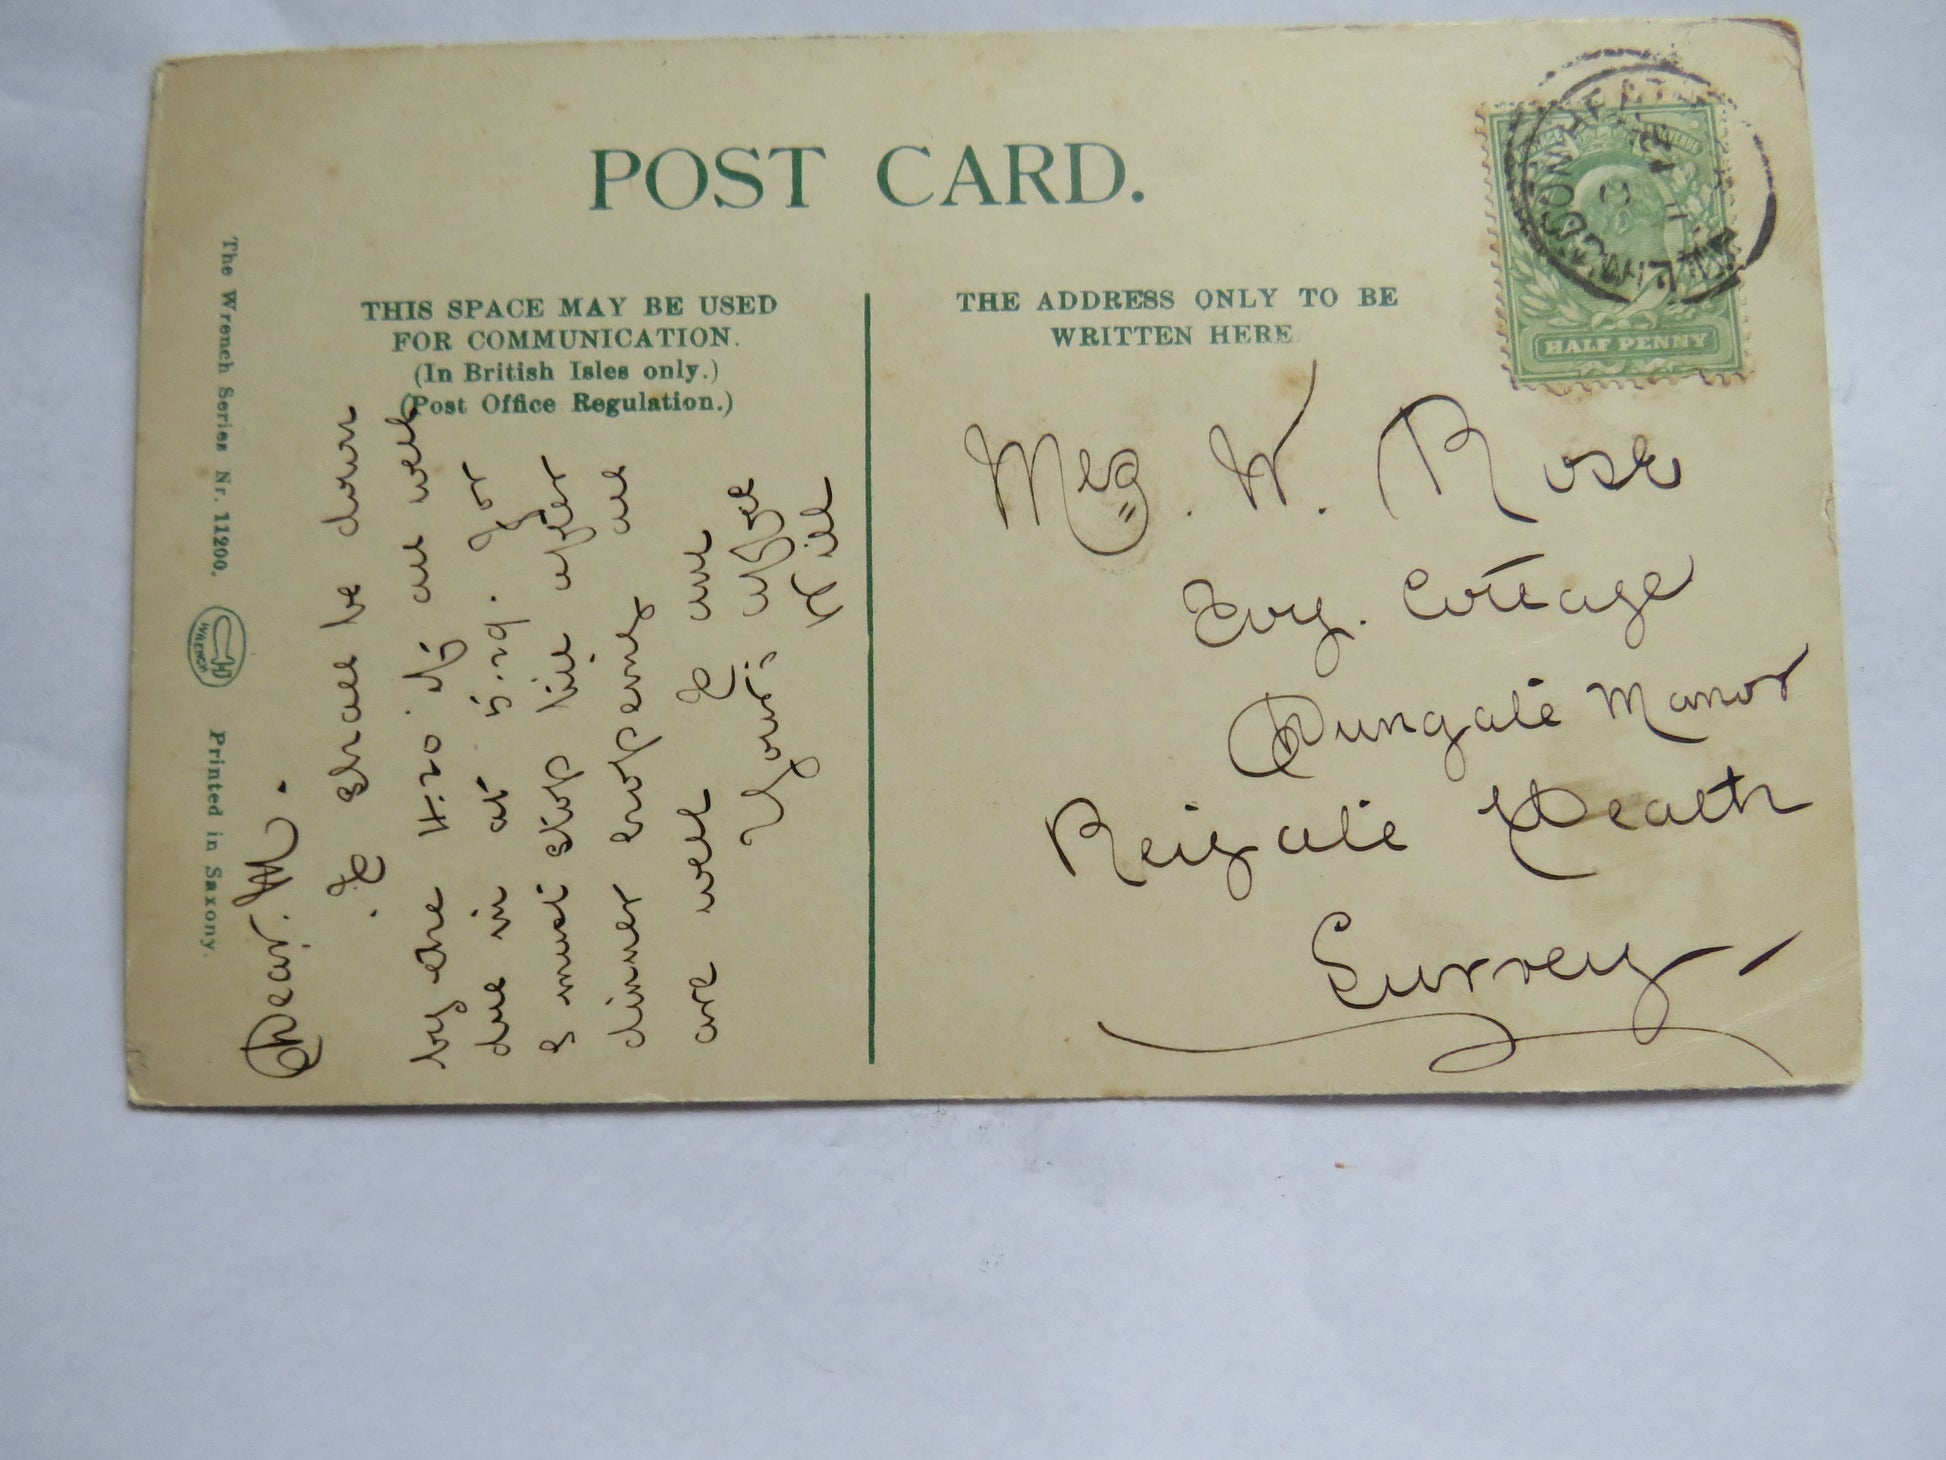 POST CARD.
THIS SPACE MAY BE USED
FOR COMMUNICATION.
(In British Isles only.)
(Post Office Regulation.)
THE ADDRESS ONLY TO BE
WRITTEN HERE
HALF PENNY
The Wrench Series Nr. 11200.
WRENCH
Printed in Saxony.
Dear. M.
I shall be down
by the 4.20 if all well
due in at 5.29. For
I must stop till after
dinner hope all
are well I am
Your's
Will
W. Rose
Ivy. Cottage
Dungate Manor
Reigate Heath
Surrey